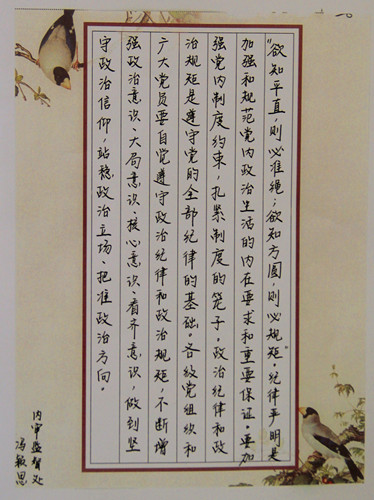 “欲知平直，则必准绳；欲知方圆，则必规矩。”纪律严明是
加强和规范党内政治生活的内在要求和重要保证。要加
强党内制度约束，扎紧制度的笼子。政治纪律和政
治规矩是遵守党的全部纪律的基础。各级党组织和
广大党员要自觉遵守政治纪律和政治规矩，不断增
强政治意识、大局意识、核心意识、看齐意识，做到坚
守政治信仰，站稳政治立场、把准政治方向。
内审监督处
冯毅思